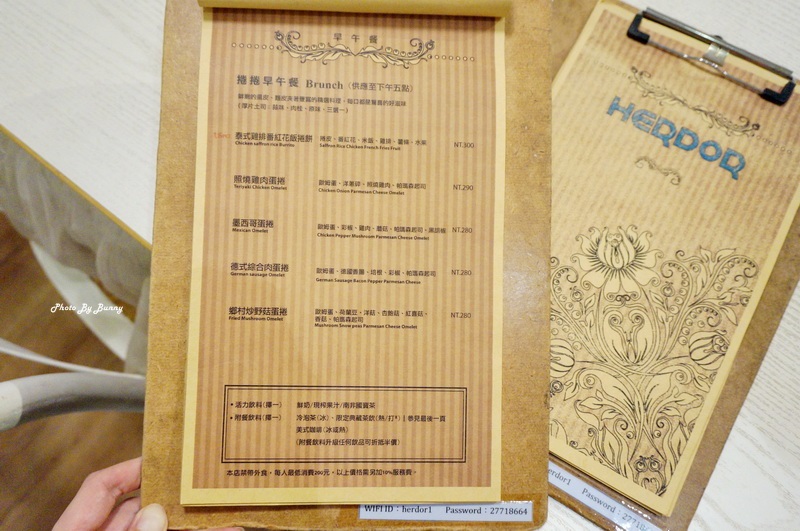 早午餐
雞捲早午餐 Brunch（供應至下午五點）
泰式雞排番紅花飯捲餅
Chicken saffron rice Burrito
捲皮、番紅花、米飯、雞排、薯條、水果
Saffron Rice Chicken French Fries Fruit
NT.300
照燒雞肉蛋捲
Teriyaki Chicken Omelet
歐姆蛋、洋蔥碎、照燒雞肉、帕瑪森起司
Chicken Onion Parmesan Cheese Omelet
NT.290
墨西哥蛋捲
Mexican Omelet
歐姆蛋、彩椒、雞肉、蘑菇、帕瑪森起司、黑胡椒
Chicken Pepper Mushroom Parmesan Cheese Omelet
NT.280
德式綜合肉蛋捲
German sausage Omelet
歐姆蛋、德國香腸、培根、彩椒、帕瑪森起司
German Sausage Bacon Pepper Parmesan Cheese
NT.280
鄉村炒野菇蛋捲
Fried Mushroom Omelet
歐姆蛋、荷蘭豆、洋菇、杏鮑菇、紅蘑菇、
香菇、帕瑪森起司
Mushroom Snow peas Parmesan Cheese Omelet
NT.280
• 活力飲料(擇一) 鮮奶/現榨果汁/南非國寶茶
• 附餐飲料(擇一) 冷泡茶(冰)、限定典藏茶飲(熱/打*)|參見最後一頁
美式咖啡(冰或熱)
(附餐飲料升級任何飲品可折抵半價)
本店禁帶外食，每人最低消費200元，以上價格需另加10%服務費。
WIFI ID：herdor1 Password：27718664
HERDOR
herdor1 Password：
Photo By Bunny